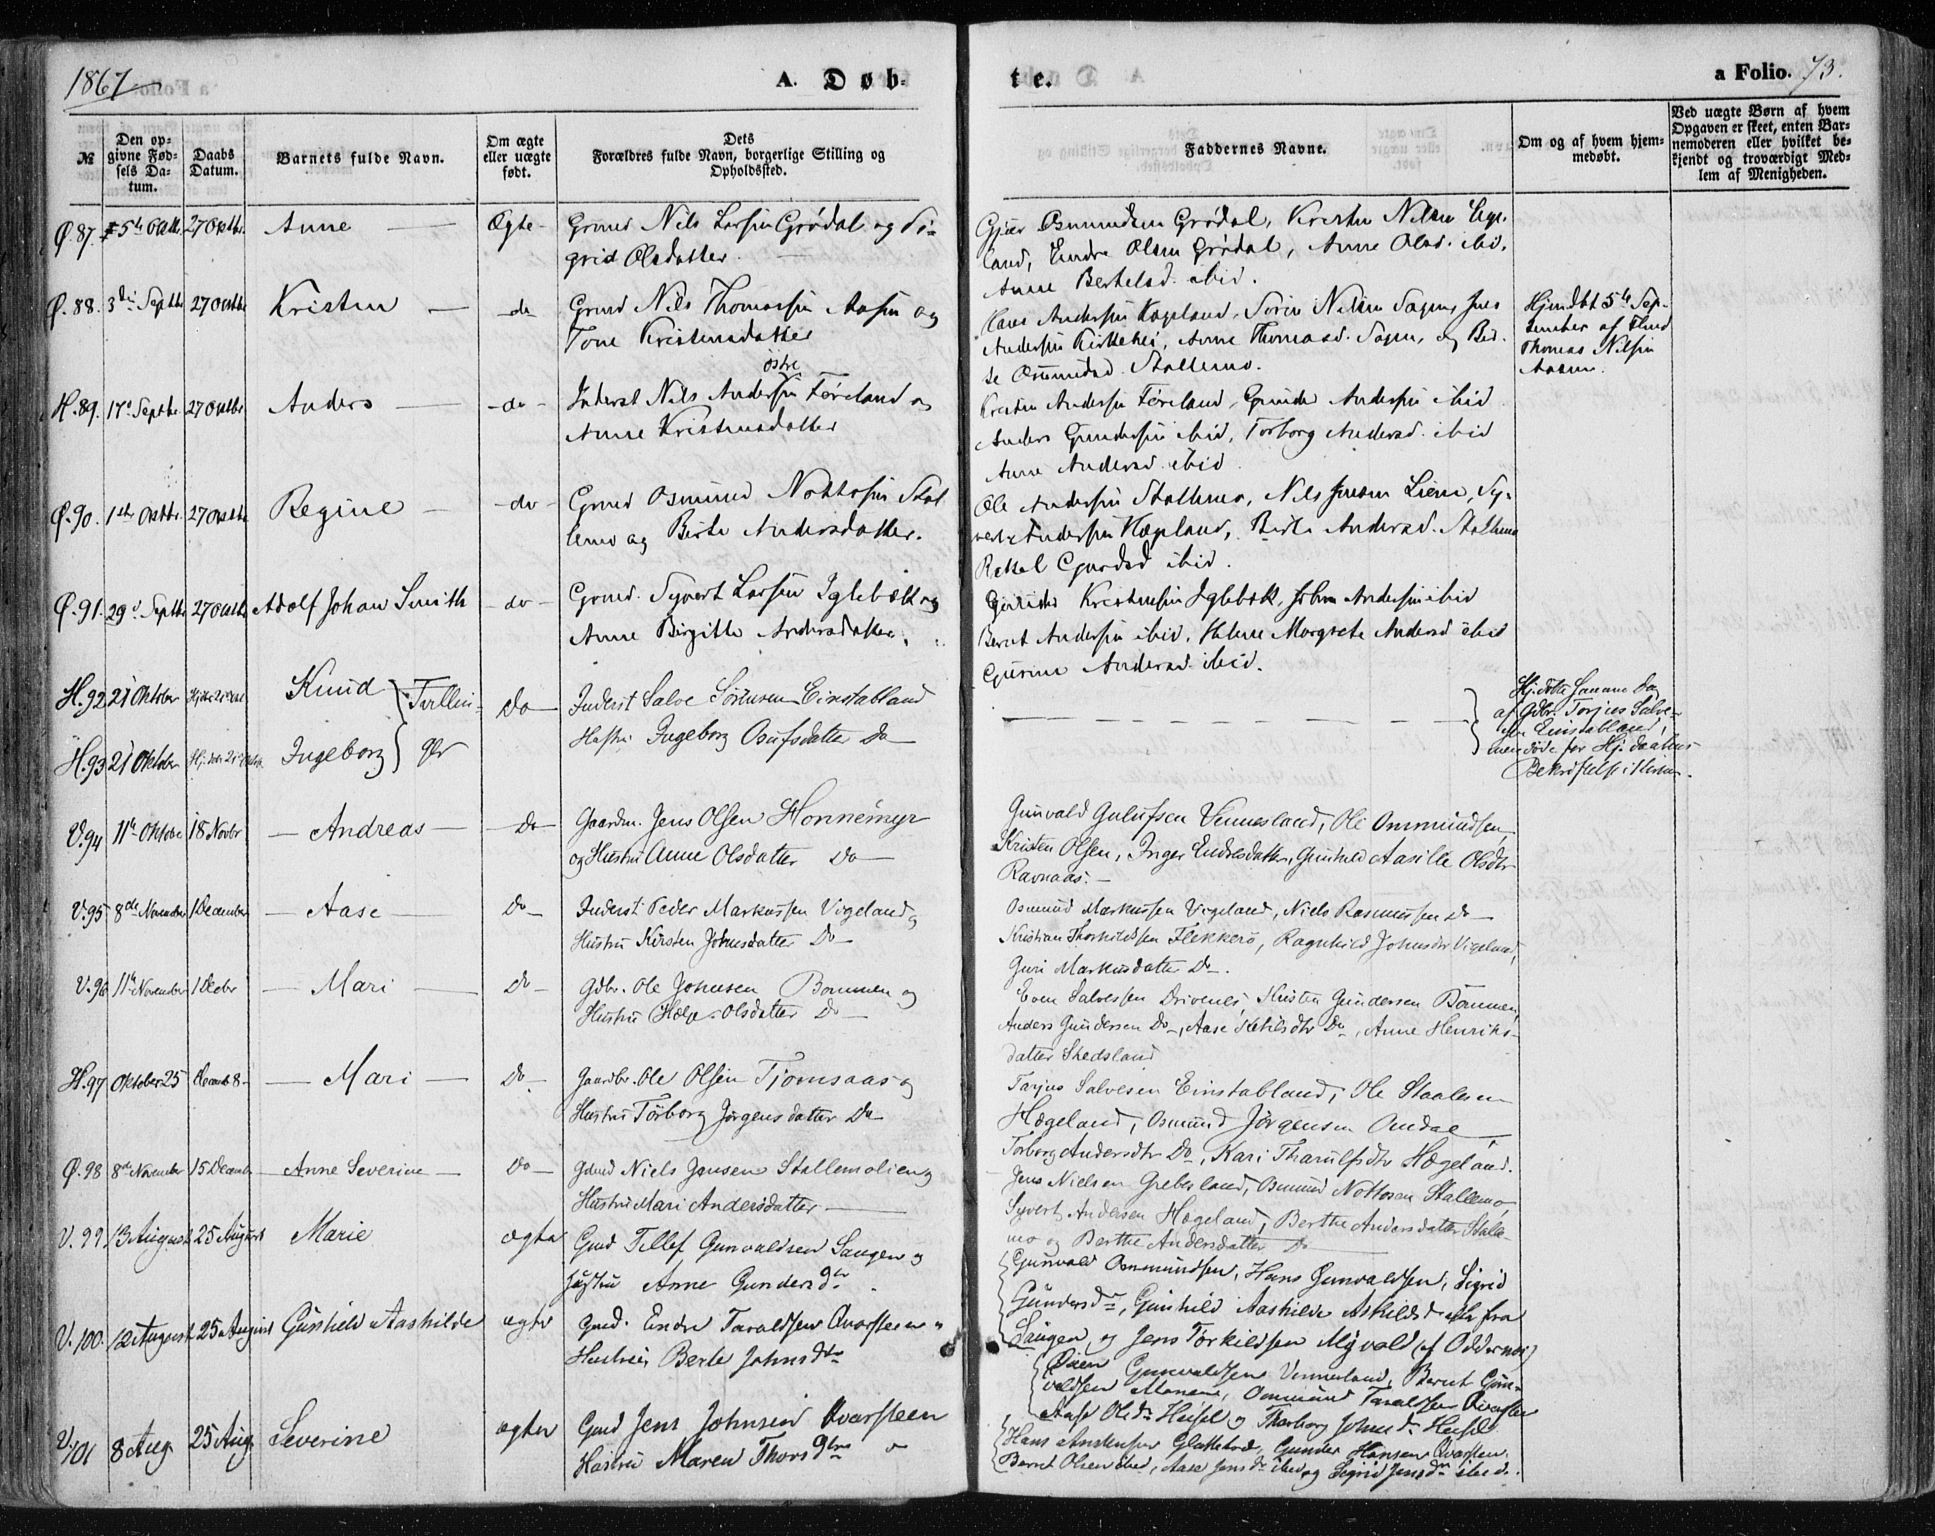 1867
A. Døb-
te.
a Folio. 73.
№
Den opgivne Fødsels Datum.
Daabs Datum.
Barnets fulde Navn.
Om ægte eller uægte født.
Dets Forældres fulde Navn, borgerlige Stilling og Opholdssted.
Faddernes Navne.
Om og af hvem hjemmedøbt.
Ved uægte Børn af hvem Opgaven er skeet, enten Barnemoderen eller hvilket bekjendt og troværdigt Medlem af Menigheden.
Ø.87. 5te Oktb. 27 Oktbr. Anne Ægte Grmd Nils Larsen Grødal og Si-
grid Olsdatter.
Osmundsen Grødal, Kristen Nilsen
land, Endre Olsen Grødal, Anne Olsd. ibid.
Anne Bertelsd. ibid.
Ø.88. 3die Septbr 27 Oktbr Kristen do Grmd Nils Thomassen Aasen og
Tone Kristensdatter
Hans Andersen Hægeland, Søren Nilsen Sagen, Jens
Andersen Kirkehei, Anne Thomasd. Sagen, og Ber-
te Osmundsd. Stallemo.
Hjemdbt 5te Sep-
tember af
Thomas Nilsen
Aasen.
H.89. 17de Septbr. 27 Oktbr Anders do Inderst Nils Andersen østre Føreland og
Anne Kristensdatter
Kristen Andersen Føreland, Gunder Andersen ibid
Anders Gundersen ibid, Torborg Andersd. ibid
Anne Andersd. ibid.
Ø.90. 1ste Oktbr. 27 Oktbr Regine do Grmd Osmund Nottosen Stal-
lemo og Birte Andersdatter.
Ole Andersen Stallemo, Nils Jensen Lien, Sy-
vert Andersen Hægeland, Birte Andersd. Stallemo
Rakel ibid.
Ø.91. 29de Septbr 27 Oktbr Adolf Johan Smith do Grmd. Syvert Larsen Iglebæk og
Anne Birgitte Andersdatter.
Gunder Kristensen Iglebæk, John Andersen ibid
Bernt Andersen ibid, Helene Margrete Andersd ibid
Gurine Andersd. ibid.
H.92 21 Oktober Knud } Tvillin- Do Inderst Salve Sørensen Einstabland
H.93 21 Oktober Ingeborg } ger Hustru Ingeborg Osufsdatter Do
Hj.døbte samme Dag
af Gdbr. Torjus Salve-
sen Einstabland,
men døde før Hj.daabens
Bekræftelse i Kirken.
V.94 11te Oktober 18 Novbr Andreas Do Gaardm. Jens Olsen Honnemyr
og Hustru Anne Olsdatter Do
Gunvald Gulufsen Vennesland, Ole Ommundsen,
Kristen Olsen, Inger Endresdatter, Gunhild Aasille Olsdtr
Ravnaas.
V.95 8de November 1 December Aase Do Inderst Peder Markussen Vigeland og
Hustru Kirsten Johnsdatter Do
Osmund Markussen Vigeland, Niels Rasmussen Do
Kristian Thorkildsen Flekkerø, Ragnhild Johnsdtr Vigeland,
Guri Markusdatter Do.
V.96 11te November 1 Decbr Mari Do Gdbr. Ole Johnsen Bommen og
Hustru Hæge Olsdatter Do
Even Salvessen Drivenes, Kristen Gundersen Bommen,
Anders Gundersen Do, Aase Ketilsdtr Do, Anne Henriks-
datter Skedsland
H.97 Oktober 25 Decemb 8 Mari Do Gaardbr. Ole Olsen Tjomsaas og
Hustru Torborg Jørgensdatter Do
Tarjus Salvesen Einstabland, Ole Staalesen
Hægeland, Osmund Jørgensen Omdal
Torborg Andersdtr Do, Kari Tharulfsdtr Hægeland.
Ø.98 8de November 15 Decembr Anne Severine Do Gdmd Niels Jensen Stallemolien og
Hustru Mari Andersdatter
Jens Nielsen Grebesland, Osmund Nottosen Stallemo,
Syvert Andersen Hægeland, Berthe Andersdatter Stalle-
mo og Berthe Andersdatter Do
V.99 13 August 25 August Marie ægte Gmd Tellef Gunvaldsen Laugen og
Hustru Anne Gundersdtr
Gunvald Ommundsen, Hans Gunvaldsen, Sigrid
Gundersdtr, Gunhild Aashilde Askildsd. alle fra
Laugen og Jens Torkildsen Myvold (af Oddernæs)
V.100 12 August 25 August Gunhild Aashilde ægte Gmd. Endre Taraldsen Qvarsteen
Hustru Berte Johnsdtr
Gunvaldsen Vennesland, Bernt Gun-
valdsen, Ommund Taraldsen Qvarsten
Aase Olsdr Heisel og Thorborg Johnsdr Heisel
V.101 8 Aug 25 Aug Severine ægte Gmd Jens Johnsen Qvarsteen
Hustru Maren Thorsdtr
Hans, Gunder Hansen Qvarsten,
Bernt Olsen ibid, Aase Jensdr ibid og Sigrid Jensdr ibid.